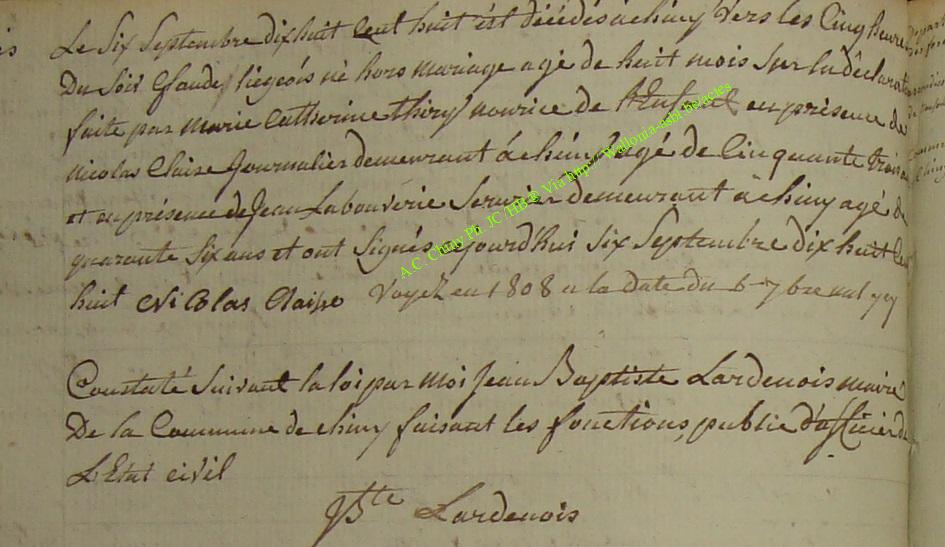 Le Six Septembre dix huit Cent huit est décédés à chiny vers les Cinq heures
Du Soir Claude liegeois nè hors mariage agé de huit mois Sur la déclarat
faite par marie Catherine thiry nourice de en présence de
nicolas Claise Journalier demeurant à chiny agé de Cinquante trois
et en présence de Jean Labouverie Serurier demeurant à chiny agé de
quarante Six ans et ont Signés aujourd'hui Six Septembre dix huit Cent
huit Nicolas Claise Voyez en 1808 a la date du 6 7bre
Constaté Suivant la loi par moi Jean Baptiste Lardenois maire
De la Commune de chiny faisant les fonctions, public d'officier de
L'Etat civil
JBte Lardenois
A.C. Chiny Ph. JC /HB © Via http://Wallonia-asbl.be/acies